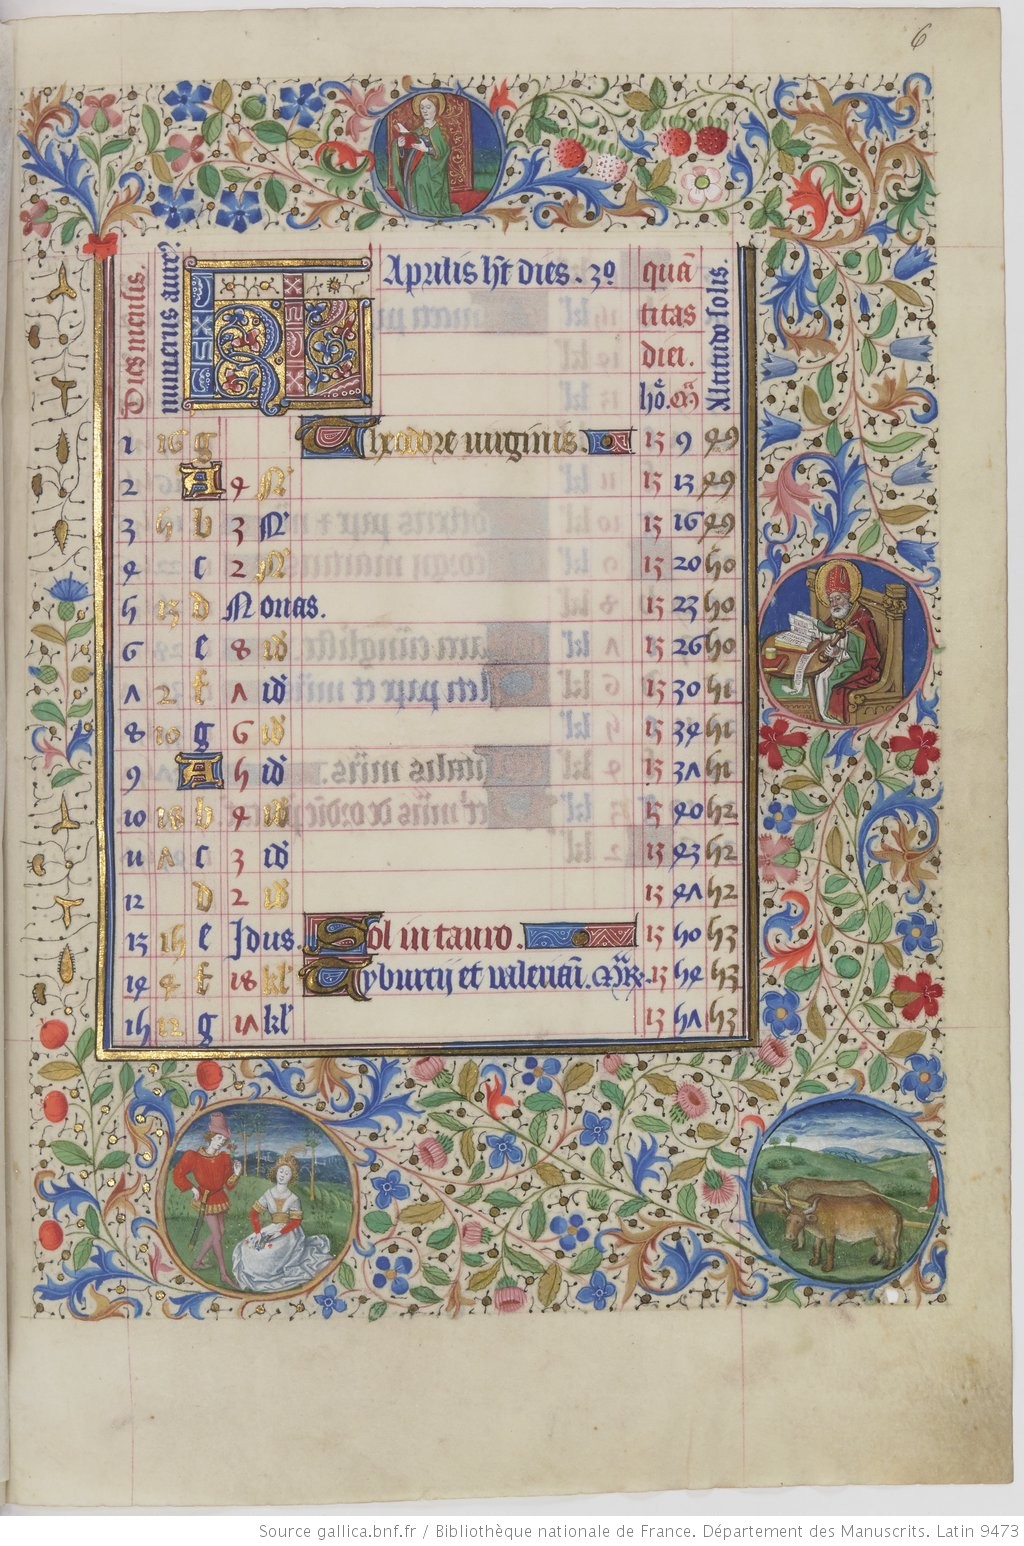 6
Dies mensis.
numerus aure9.
KL Aprilis ht dies. 30
quā
titas
diei.
ho. m̄
Altitudo solis.
1 16 g Theodore uirginis. 15 9 49
2 A 4 N' 15 13 49
3 5 b 3 N' 15 16 49
4 c 2 N' 15 20 50
5 13 d Nonas. 15 23 50
6 e 8 id' 15 26 50
7 2 f 7 id' 15 30 51
8 10 g 6 id' 15 34 51
9 A 5 id' 15 37 51
10 18 b 4 id' 15 40 52
11 7 c 3 id' 15 43 52
12 d 2 id' 15 47 52
13 15 e Jdus. Sol in tauro. 15 50 53
14 4 f 18 kl' Tyburcij et ualeriani. 15 54 53
15 12 g 17 kl' 15 57 53
Source gallica.bnf.fr / Bibliothèque nationale de France. Département des Manuscrits. Latin 9473